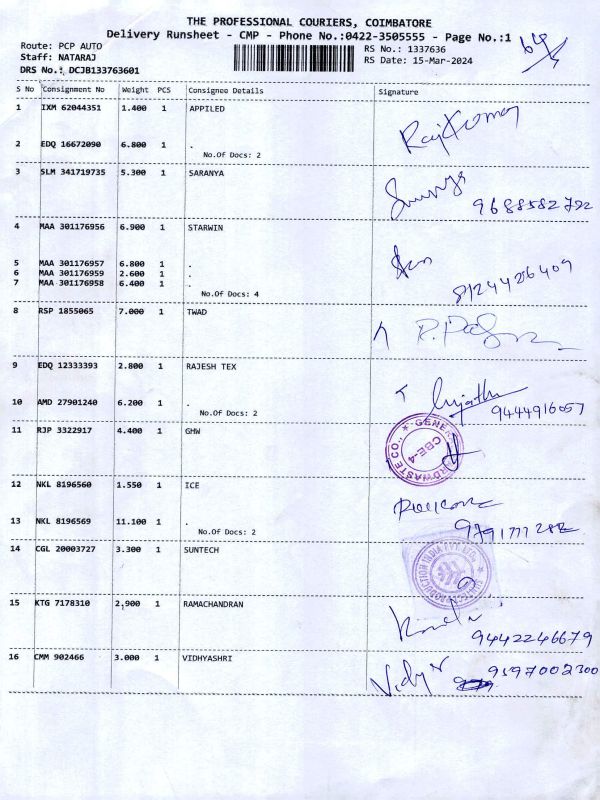 THE PROFESSIONAL COURIERS, COIMBATORE
Delivery Runsheet - CMP - Phone No.:0422-3505555 - Page No.:1
Route: PCP AUTO
RS No.: 1337636
Staff: NATARAJ
RS Date: 15-Mar-2024
DRS No.: DCJB133763601
S No Consignment No Weight PCS Consignee Details Signature
1 IXM 62044351 1.400 1 APPILED
Rajkumar
2 EDQ 16672090 6.800 1 .
No.Of Docs: 2
3 SLM 341719735 5.300 1 SARANYA
9688582792
4 MAA 301176956 6.900 1 STARWIN
5 MAA 301176957 6.800 1 .
6 MAA 301176959 2.600 1 .
7 MAA 301176958 6.400 1 .
8124426409
No.Of Docs: 4
8 RSP 1855065 7.000 1 TWAD
9 EDQ 12333393 2.800 1 RAJESH TEX
10 AMD 27901240 6.200 1 .
9444916057
No.Of Docs: 2
11 RJP 3322917 4.400 1 GHW
CBE-4
12 NKL 8196560 1.550 1 ICE
13 NKL 8196569 11.100 1 .
No.Of Docs: 2
14 CGL 20003727 3.300 1 SUNTECH
15 KTG 7178310 2.900 1 RAMACHANDRAN
9442246679
16 CMM 902466 3.000 1 VIDHYASHRI
9597002300